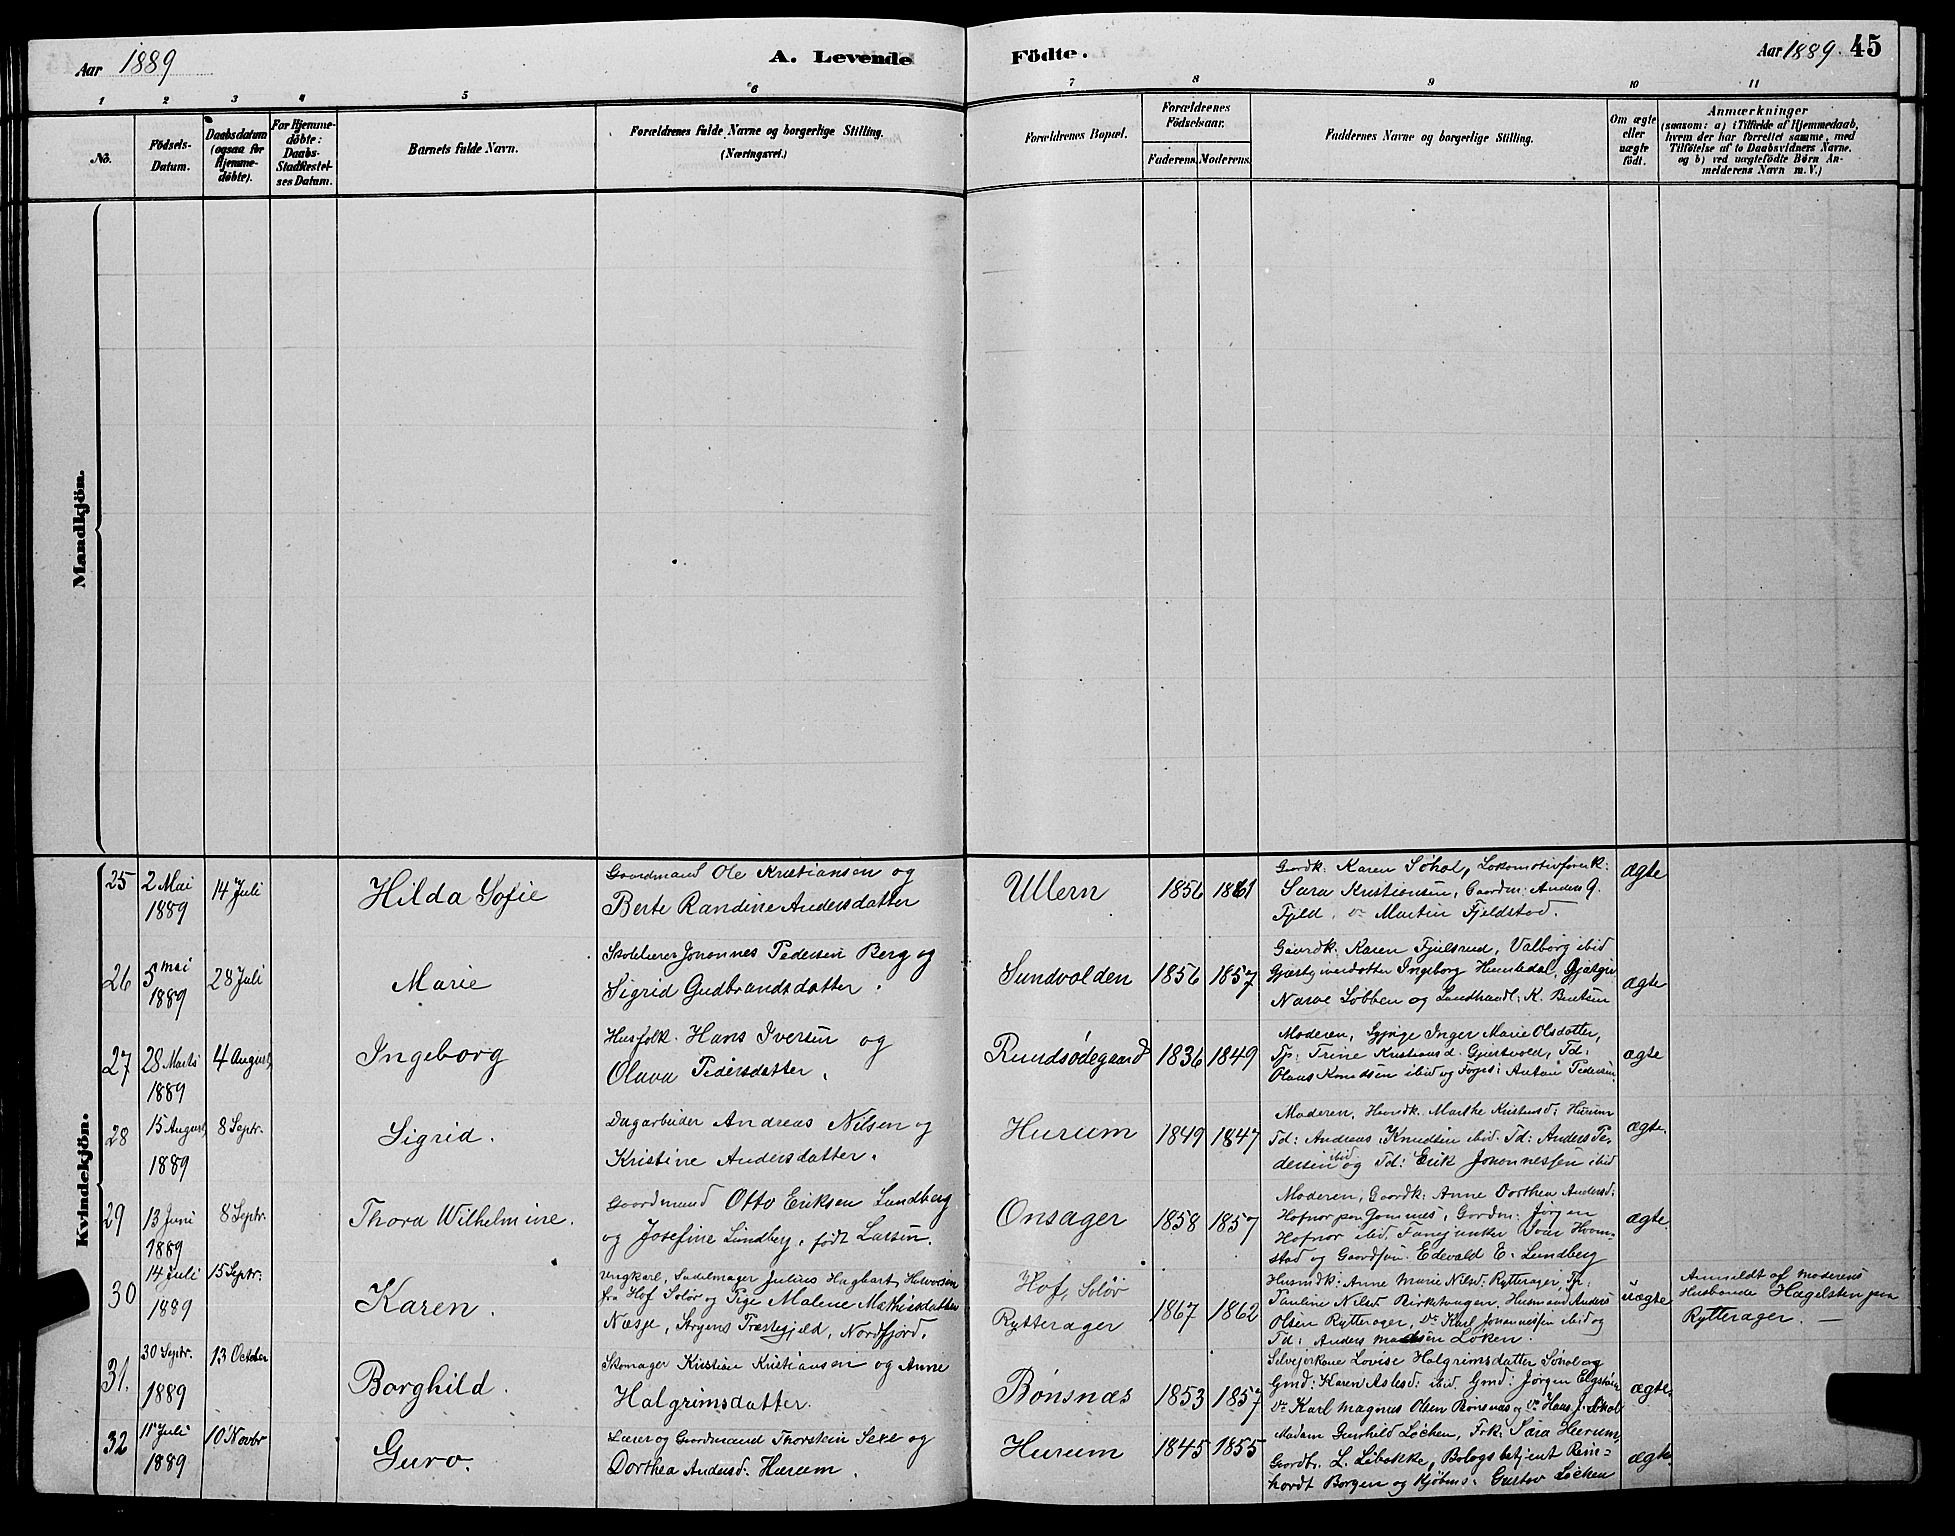 Aar 1889
A. Levende
Födte.
Aar 1889. 45
1 2 3 4 5 6 7 8 9 10 11
No.
Födsels-
Datum.
Daabsdatum
(ogsaa for
Hjemme-
döbte).
For Hjemme-
döbte:
Daabs-
Stadfæstel-
ses Datum.
Barnets fulde Navn.
Forældrenes fulde Navne og borgerlige Stilling.
(Næringsvei.)
Forældrenes Bopæl.
Forældrenes
Födselsaar.
Faderens. Moderens.
Faddernes Navne og borgerlige Stilling.
Om ægte
eller
uægte
födt.
Anmærkninger
(saasom: a) i Tilfælde af Hjemmedaab,
hvem der har forrettet samme, med
Tilföielse af to Daabsvidners Navne,
og b) ved uægtefödte Börn An-
melderens Navn m. V.)
Mandkjön.
Kvindekjön.
25
2 Mai
1889
14 Juli
Hilda Sofie
Gaardmand Ole Kristiansen og
Berte Randine Andersdatter
Ullern
1856
1861
Gordk: Karen Søhol, Lokomotivførerk:
Sara Kristiansen, Gaardm: Anders G.
Fjeld, Martin Fjeldstad.
Ægte
26
5 Mai
1889
28 Juli
Marie
Skolelærer Johannes Pedersen Berg og
Sigrid Gudbrandsdatter.
Sundvolden
1856
1857
Gaardk: Karen Fjulsrud, Valborg ibid
Gjæstgiverdatter Ingeborg Hemledal, Gjæstgiv
Narve Løbben og Landhandl: K. Bentsen
ægte
27
28 Marts
1889
4 August,
Ingeborg
Husfolk. Hans Iversen og
Olava Pedersdatter.
Rundsødegaard
1836
1849
Moderen, Inger Marie Olsdatter,
Tp: Trine Kristiansd. Gjertvold, Td:
Olaus Knudsen ibid og Anton Pedersen
ægte
28
15 August,
1889
8 Septr.
Sigrid.
Dagarbeider Andreas Nilsen og
Kristine Andersdatter.
Hurum
1849
1847
Moderen, Marthe Kristensd: Hurum
Td: Andreas Knudsen ibid. Td: Anders Pe-
dersen ibid og Td: Erik Johannessen ibid
ægte.
29
13 Juni
1889
8 Septr.
Thora Wilhelmine.
Gaardmand Otto Eriksen Lundberg
og Josefine Lundberg, født Larsen.
Onsager
1858
1857
Moderen, Gaardk: Anne Dorthea Andersd:
Hofnor paa Gommes, Gordm: Jørgen
Hofnor ibid, Fanejunker Ivar Hvam-
stad og Gaardsøn. Edevald E. Lundberg
ægte.
30
14 Juli
1889
15 Septr.
Karen.
Ungkarl, Sadelmager Julius Hagbart Halvorsen
fra Hof Solør og Pige Malene Mathisdatter
Næsje, Stryens Præstegjeld, Nordfjord.
Hof, Solör
Rytterager
1867
1862
Husmdk: Anne Marie Nilsd, Rytterager, Tp:
Pauline Nilsd Birkehaugen, Husmand Anders
Olsen Rytterager, Do Karl Johannessen ibid og
Td: Anders Madsen Løken.
uægte
Anmeldt af Moderens
Husbonde Hagelsten paa
Rytterager. —
31.
30 Septr.
1889
13 October
Borghild.
Skomager Kristian Kristiansen og Anne
Halgrimsdatter.
Bönsnæs
1853
1857
Selveierkone Lovise Halgrimsdatter Søhol og
Gmd: Karen Aslesd: ibid, Gmd: Jørgen Elgstøen
Do Karl Magnus Olsen Bønsnæs og Do Hans J. Søhol
ægte.
32
11 Juli
1889
10 Novbr
Guro.
Lærer og Gaardmand Thorstein Sexe og
Dorthea Andersd: Hurum.
Hurum
1845
1855
Madam Gunhild Løchen, Frk: Sara Hurum,
Gordbr. L. Libakke, Bologsbetjent Rein-
hardt Borgen og Kjøbms: Gustav Løchen
ægte.